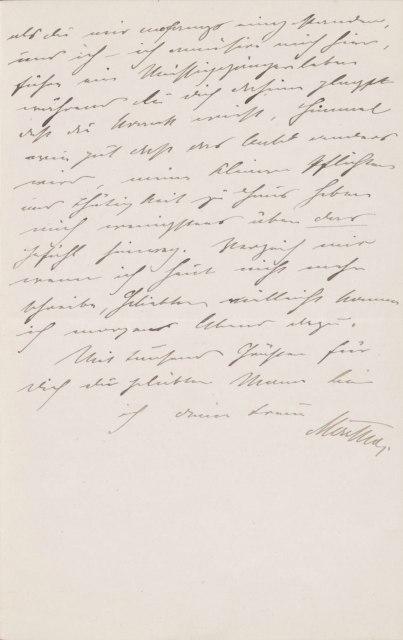 als du mir
und ich – ich amüsire mich hier,
führe ein Müssiggängerleben
während du dich daheim plagst
daß du krank wirst, Himmel
wie gut daß das bald anders
wird, meine kleinen Pflichten
und Thätigkeit zu Haus heben
mich wenigstens über das
Gefühl hinweg. Verzeih mir
wenn ich heut nicht mehr
schreibe, Geliebter, vielleicht komme
ich morgen Abend dazu.
Mit tausend Grüßen für
Dich du geliebter Mann bin
ich deine treue
Martha.